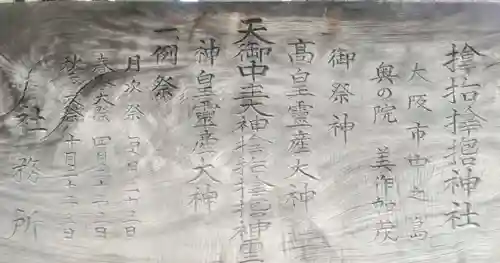 抬 神社
大阪市中之島
奥の院 美作加茂
御祭神
高皇靈産大神
天御中主大神 抬 神
神皇靈産大神
一例祭
月次祭 二十三日
春 大祭 四月二十 日
秋 大祭 十月二十 日
社務所